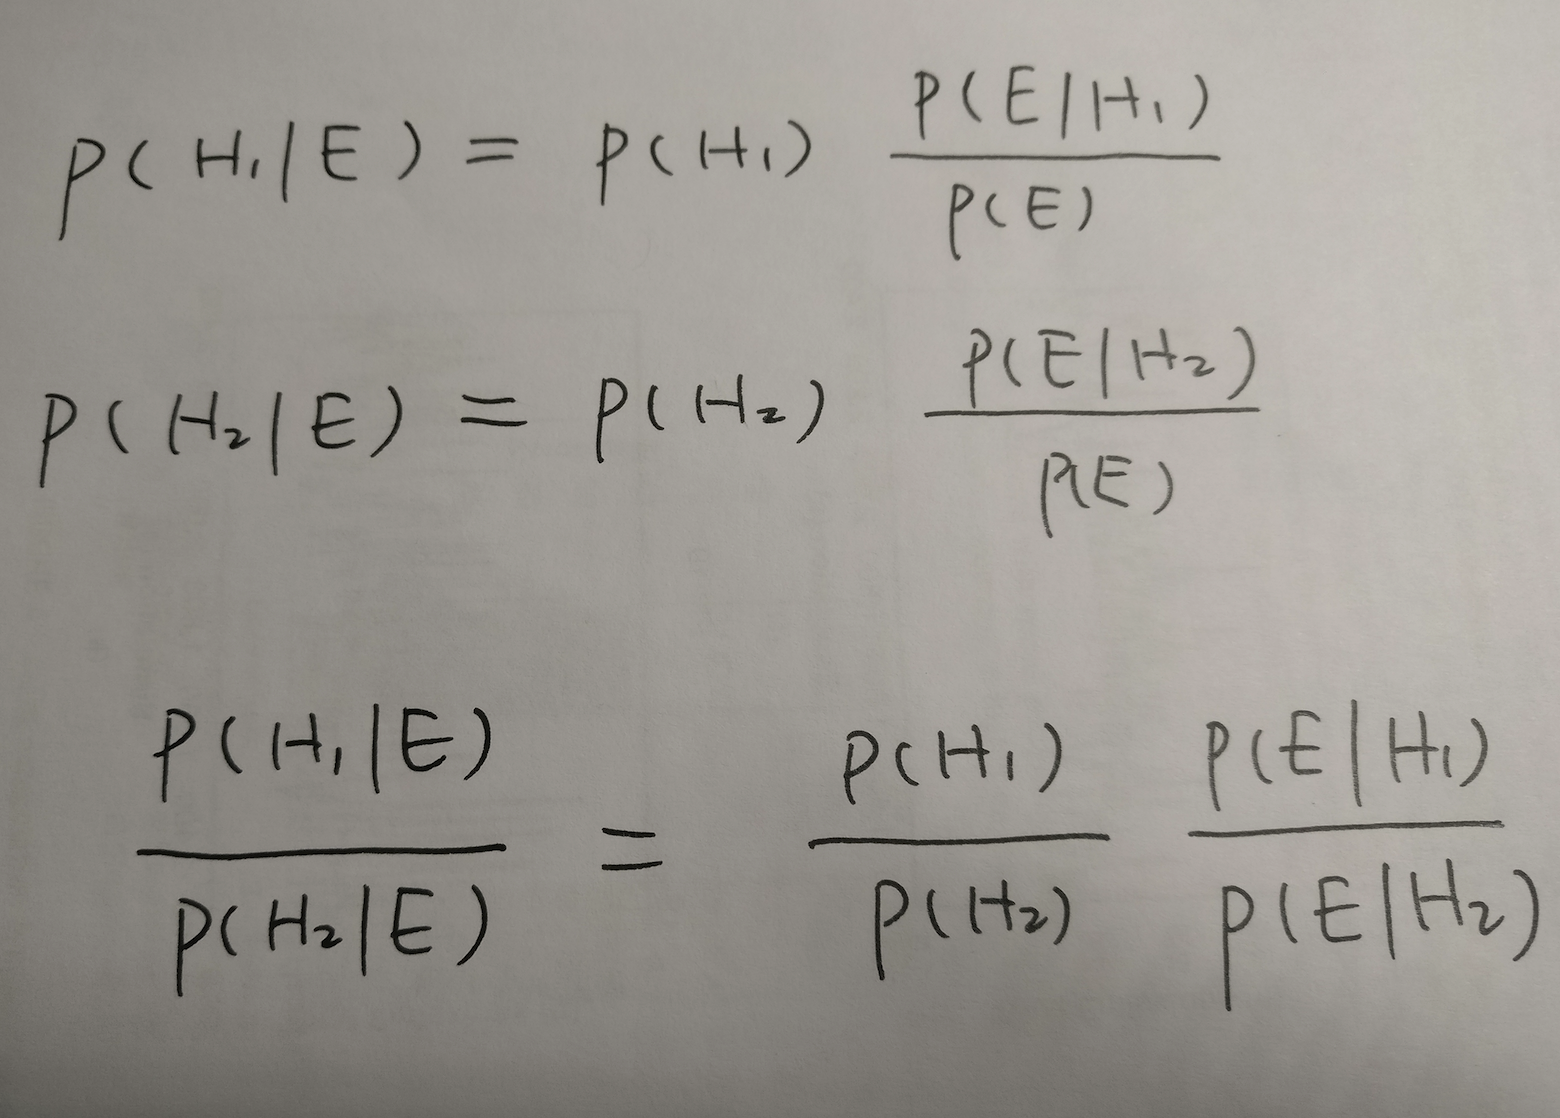 P(H₁|E) = P(H₁) P(E|H₁) / P(E)
P(H₂|E) = P(H₂) P(E|H₂) / P(E)
P(H₁|E) / P(H₂|E) = P(H₁) / P(H₂) P(E|H₁) / P(E|H₂)